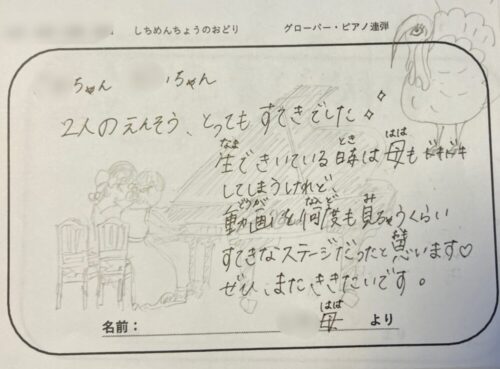 しちめんちょうのおどり グローバー・ピアノ連弾
ちゃん ちゃん
2人のえんそう、とってもすてきでした
生できいている時は母もドキドキ
してしまうけれど、
動画を何度も見ちゃうくらい
すてきなステージだったと思います♡
ぜひ、またききたいです。
名前： 母より